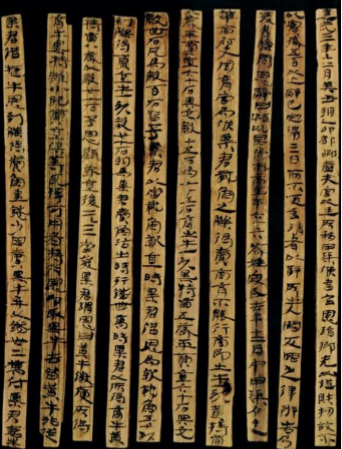 建武三年十二月癸丑朔乙卯都鄉嗇夫宮以廷所移甲渠候書召恩詣鄉先以證財物故不
以實臧五百以上辭已定滿三日而不更言請者以辭所出入罪反罪之律辨告乃
爰書驗問恩辭曰潁川昆陽市南里年六十六歲姓寇氏去年十二月中甲渠令史
華商尉史周育當為候粟君載魚之觻得賣商育不能行商即出牛一頭黃特齒
八歲平賈直六十石與交穀十五石為七十五石育出牛一頭黑特齒五歲平賈直六十石與交
穀卌石凡為穀百石皆予粟君以當載魚就直時粟君借恩為就載魚五千頭
到觻得賈直牛一頭穀廿七石約為粟君賣魚沽出時行錢卌萬時粟君以所得商牛黃
特齒八歲以穀廿七石予恩顧就直後二三日當發粟君謂恩曰黃特微庾所得
育牛黑特雖小肥賈直俱等耳擇可用者持行恩即取黑牛去留黃牛非從
粟君借牛恩到觻得賣魚盡錢少因賣黑牛并以錢卅二萬付粟君妻業